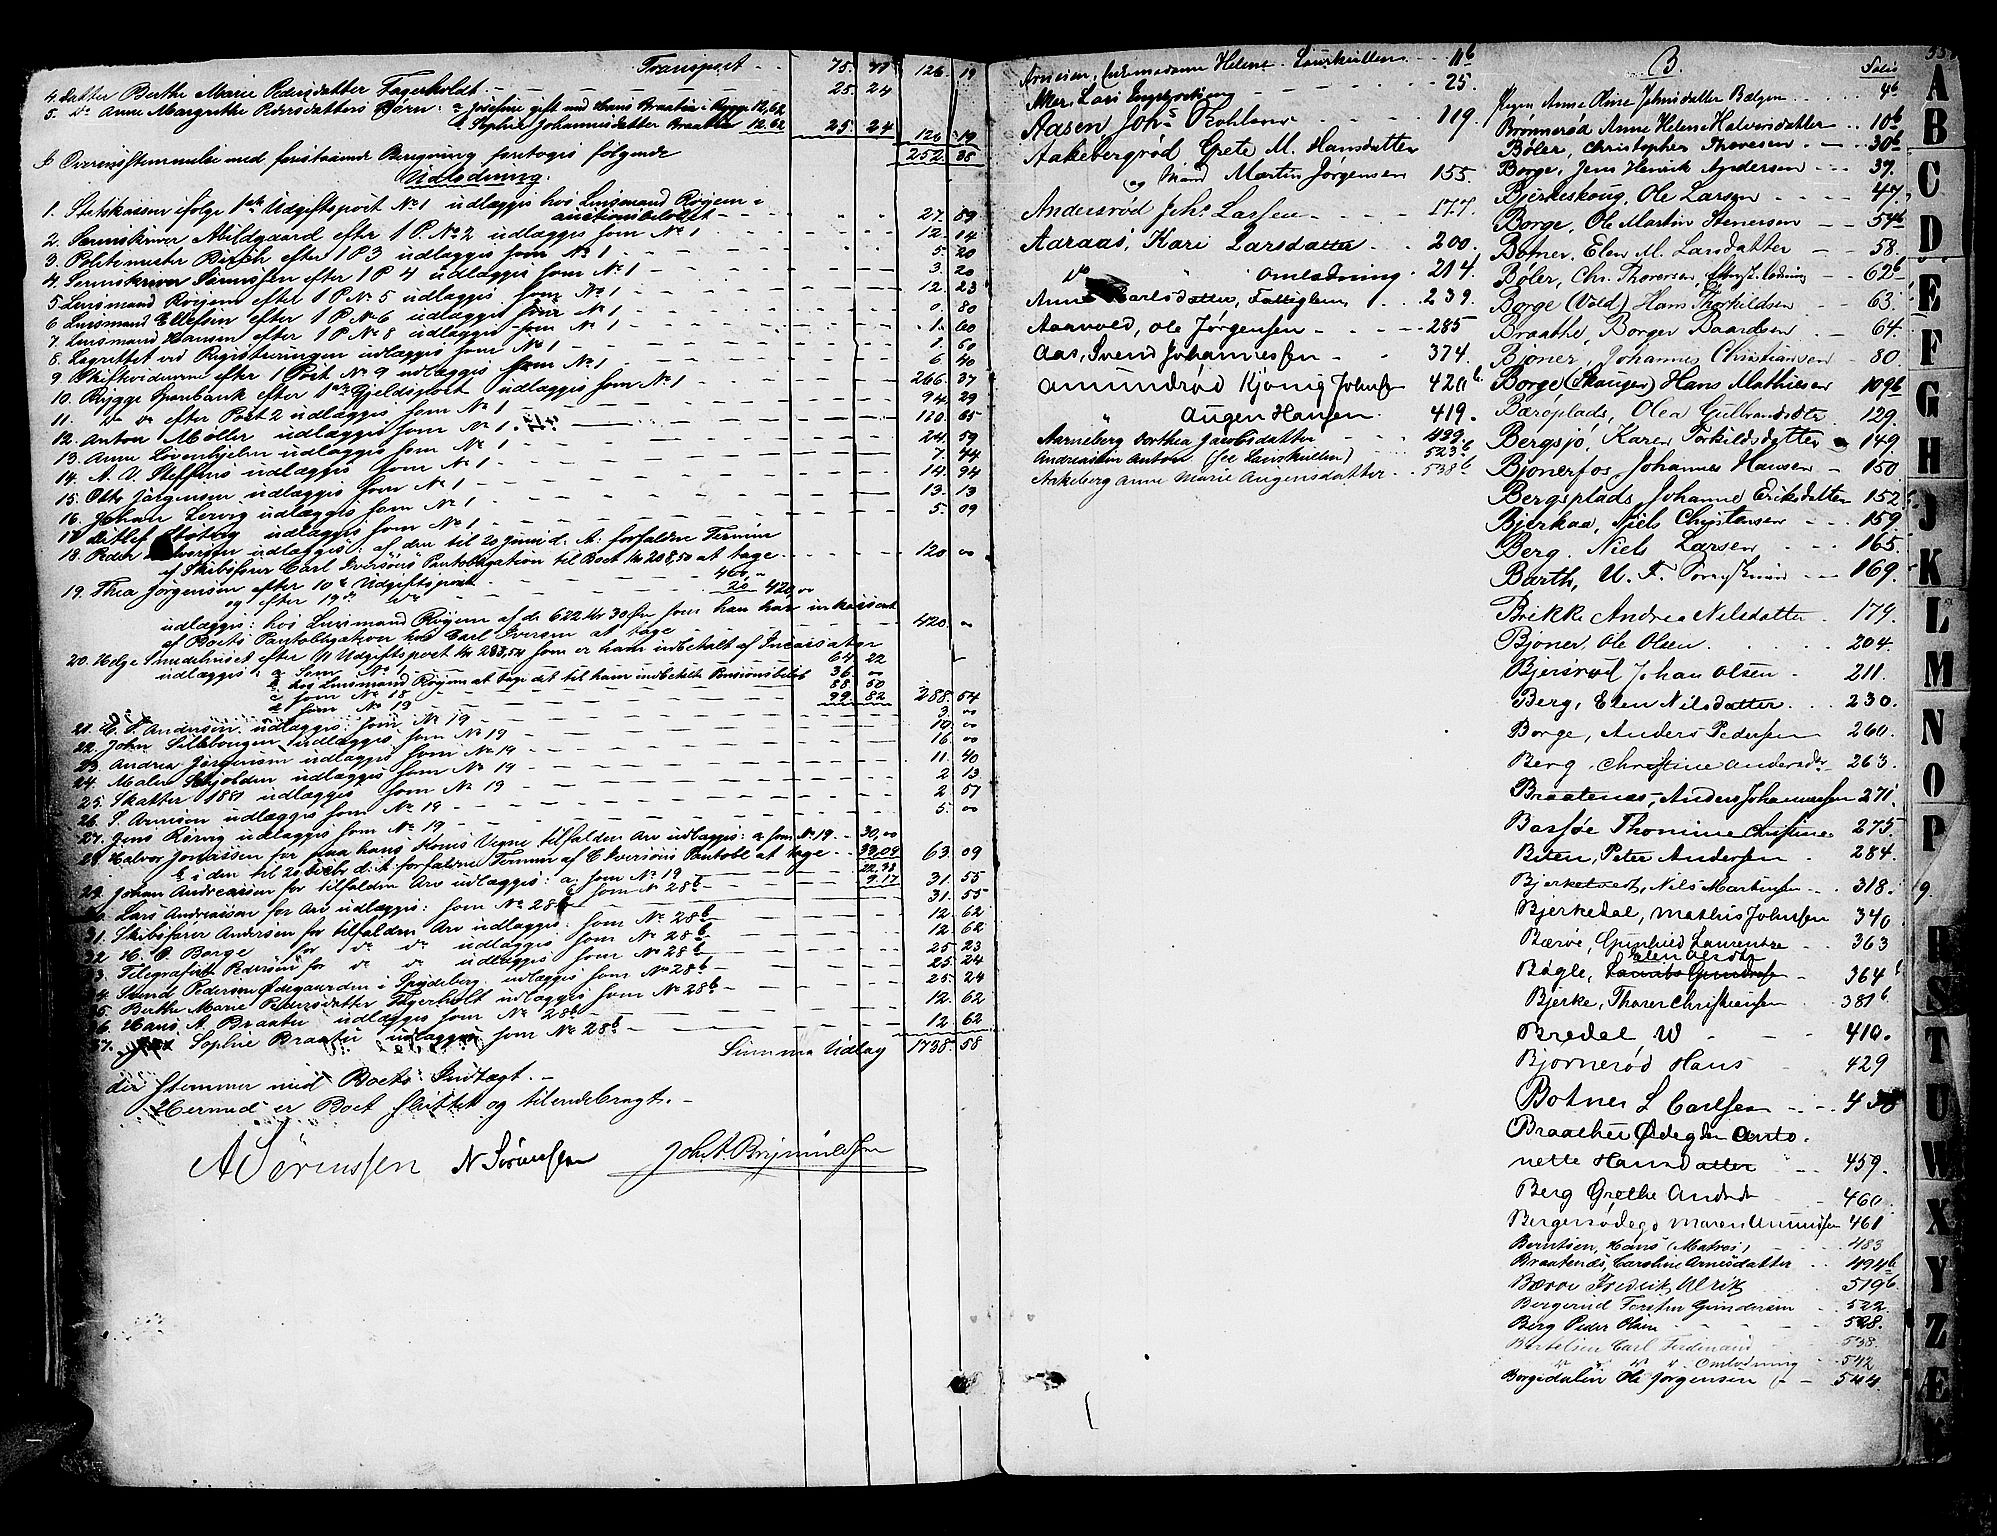 Transport - - 75. 71 126. 19
4. Datter Berthe Marie Pedersdatter Fagerholdt - - - - 25 24
5. Do Anne Margrethe Pedersdatters Børn: a Josefine gift med Hans Braaten i Rygge 12,62
b Sophie Johannesdatter Braaten 12.62 25. 24 126. 19
252. 38
I Overensstemmelse med foranstaaende Beregning foretoges følgende
Udlodning.
1. Statskassen ifølge 1ste Udgiftspost No 1 udlægges hos Lensmand Røyem i
auctionsbeløbet - - - 27. 89
2. Sorenskriver Abildgaard efter 1 P. No 2 udlægges som No 1 - - 12. 14
3. Politimester Birch efter 1 P 3 udlægges som No 1 - - 5. 20
4. Sorenskriver Sørenssen efter 1 P 4 udlægges som No 1 - - 3. 20
5. Lensmand Røyem efter 1 P No 5 udlægges som No 1 - - 12. 23
6. Lensmand Ellefsen efter 1 P No 6 udlægges som No 1 - - 0. 80
7. Lensmand Hansen efter 1 P No 8 udlægges som No 1 - - 1. 60
8. Lagrettet ved Registreringen udlægges som No 1 - - 1. 60
9. Skiftevidnerne efter 1 Post No 9 udlægges som No 1 - - 6. 40
10. Rygge Sparebank efter 1ste Gjeldspost udlægges som No 1 - - 266. 37
11. Do do efter Post 2 udlægges som No 1 - - 94. 29
12. Anton Møller udlægges som No 1 - - 120. 65
13. Anne Løvenhjelm udlægges som No 1 - - 24. 59
14. A. V. Steffens udlægges som No 1 - - 7. 44
15. Otto Jørgensen udlægges som No 1 - - 14. 94
16. Johan Lervig udlægges som No 1 - - 13. 13
17. Ditlef udlægges som No 1 - - 5. 09
18. Peder udlægges: af den til 20 Juni d. A. forfaldne Termin
af Skibsfører Carl Iversens Pantobligation til Boet Kr 208,50 at tage - - 120 00
19. Thea Jørgensen efter 10de Udgiftspost - - 400,"
og efter 19de do - - 20 420,00
udlægges: hos Lensmand Røyem af de 622 Kr 30 Øre som han har inkasseret
af Boets Pantobligation hos Carl Iversen at tage - - 420. 00
20. Helge Smedehuset efter 11 Udgiftspost Kr 283,54 som er ham indbetalt af Incassator
udlægges: a som No 1 - - 64 22
b. hos Lensmand Røyem at tage det til ham indbetalte Pensionsbeløb 36 00
c som No 18 - - 88. 50
d som No 19 - - 99. 82 288. 54
21. C. S. Andersen udlægges som No 19 - - 3. 00
22. Johan udlægges som No 19 - - 10. 00
23 Andrea Jørgensen udlægges som No 19 - - 16. 00
24. Malene Skjolden udlægges som No 19 - - 11. 40
25. Skatter 1881 udlægges som No 19 - - 2 13
26. S. Arnesen udlægges som No 19 - - 2 57
27. Jens Rørvig udlægges som No 19 - - 5. 00
28 Halvor Jonassen for paa hans Kones Vegne tilfalden Arv udlægges: a som No 19 - 30,00
b i den til 20 Decbr d. A. forfaldne Termin af C Iversens Pantobl at tage - - 33,09 63. 09
29. Johan Andreassen for tilfalden Arv udlægges: a. som No 19 - - 22,38
b som No 28b - - 9.17 31. 55
30. Lars Andreassen for Arv udlægges: som No 28b - - 31. 55
31. Skibsfører Andersen for tilfalden Arv udlægges: som No 28b - - 12. 62
32 H. O. Borge for do do udlægges som No 28b - - 12. 62
33. Telegrafist Pedersen for do do udlægges som No 28b - - 25 23
34. Svend Pedersen Ødegaarden i Spydeberg udlægges som No 28b - - 25. 24
35. Berthe Marie Pedersdatter Fagerholt udlægges som No 28b - - 25. 24
36. Hans A. Braaten udlægges som No 28b - - 12. 62
37. Sophie Braaten udlægges som No 28b - - 12 62
Summa Udlæg 1738. 58
der stemmer med Boets Indtægt. -
Hermed er Boet sluttet og tilendebragt. -
A Sørenssen N Sørenssen Joh. A. Brynildsen
Arnesen, Enkemadame Helene Laurkullen - - 11b
Aker, Lars - - 25.
Aasen Johs - - 119.
Aakebergrød. Grete M. Hansdatter
og Mand Martin Jørgensen 155.
Andersrød Johs Larsen - - 177.
Aaraas, Kari Larsdatter - - 200.
do " Omlodning - 214.
Anne Karlsdatter, Fattiglem - - 239.
Aanvold, Ole Jørgensen - - 285
Aas, Svend Johannessen - - 374.
Amundrød Kjønig Johnsen 420b
" Augen Hansen. 419.
Aarneberg Dorthea Jacobsdatter - - 499.
Andreassen Anton (see Laurkullen) - - 523b
Aakeberg Anne Marie Augensdatter - - 538b
B. Folio
Anne Oline Johnsdatter Bølgen - - 4b
Brønnerød Anne Helene Halvorsdatter - - 10b
Bøler, Christopher Thoresen - - 30b
Borge, Jens Henrik Andersen - - 39.
Bjerkeskoug, Ole Larsen - - 47.
Borge, Ole Martin Stenersen - - 54b
Botner, Elen M. Larsdatter - - 58.
Bøler, Chr. Thoresen, - - 62b
Borge (Vold) Hans Thorkildsen - - 63.
Braathe, Borger Baardsen - - 64.
Bjoner, Johannes Christiansen - 80
Borge (Skauger) Hans Mathiesen 109b
Bærøplads, Olea Gulbrandsdtr 129.
Bergsjø, Karen Torkildsdatter - 149.
Bjonerfos Johannes Hansen - 150.
Bergsplads Johanne Eriksdatter 152.
Bjerkaa, Niels Christensen - - 159.
Berg. Niels Larsen - - 165.
Barth, U. F. - - 169.
Brikke Andrea Nilsdatter. 179.
Bjoner, Ole Olsen. - - 204.
Bjersrød Johan Olsen. 211.
Berg, Elen Nilsdatter. - - 230.
Borge, Anders Pedersen 260.
Berg. Christine Andersdr. - 263.
Braatenæs, Anders Johannessen 271.
Basføe Thomine Christine 275.
Biten, Peter Andersen. 284.
Bjerketvedt, Nils Martinsen - - 318.
Bjerkedal, Mathis Johnsen 340
Bærøe, Gunhild Laurentze - - 363
Elen Olsdtr
Bøgle, - - 364b
Bjerke, Thorer Christiansen - 381b
Bredal W - - 410.
Bjørnerød Hans 429
Botner L Carlsen - - 458
Braathen Ødegdn Anto.
nette Hansdatter - - 459.
Berg Grethe Andsdr - 460
Bergersødegd Maren Amundsen 461
Berntsen, Hans (Matros) - - 483
Braatenæs, Caroline Arnesdatter - - 494b
Bærøe Fredrik Ulrik - - 519b
Bergerud Torsten Gundersen - 522.
Berg Peder Olsen - - 528.
Bertelsen Carl Ferdinand - - 538.
do do do do Omlodning - - 542
Borgedalen Ole Jørgensen - - 544.
A
B
C
D
E
F
G
H
J
K
L
M
N
O
P
R
S
T
U
W
X
Y
Z
Æ